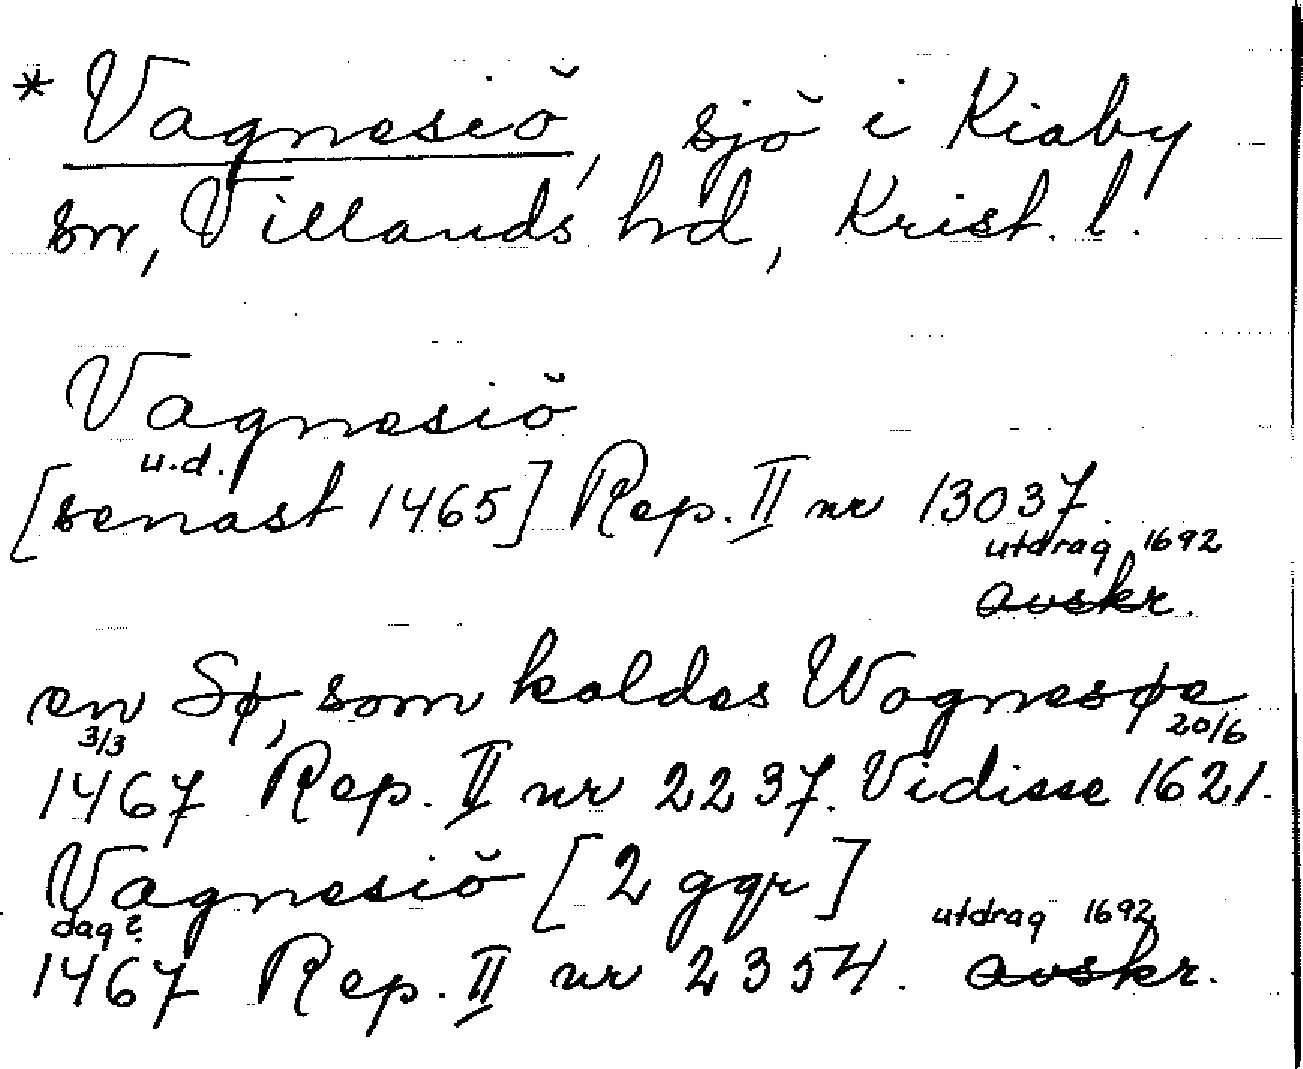 * Vagnesiö, sjö i Kiaby
sn, Villands hd, Krist. l.
Vagnesiö
u.d.
[senast 1465] Rep. II nr 13037.
utdrag 1692
avskr.
en Sø, som kaldes Wognesøe
3/3 20/6
1467 Rep. II nr 2237. Vidisse 1621.
Vagnesiö [2 ggr]
dag? utdrag 1692
1467 Rep. II nr 2354. avskr.